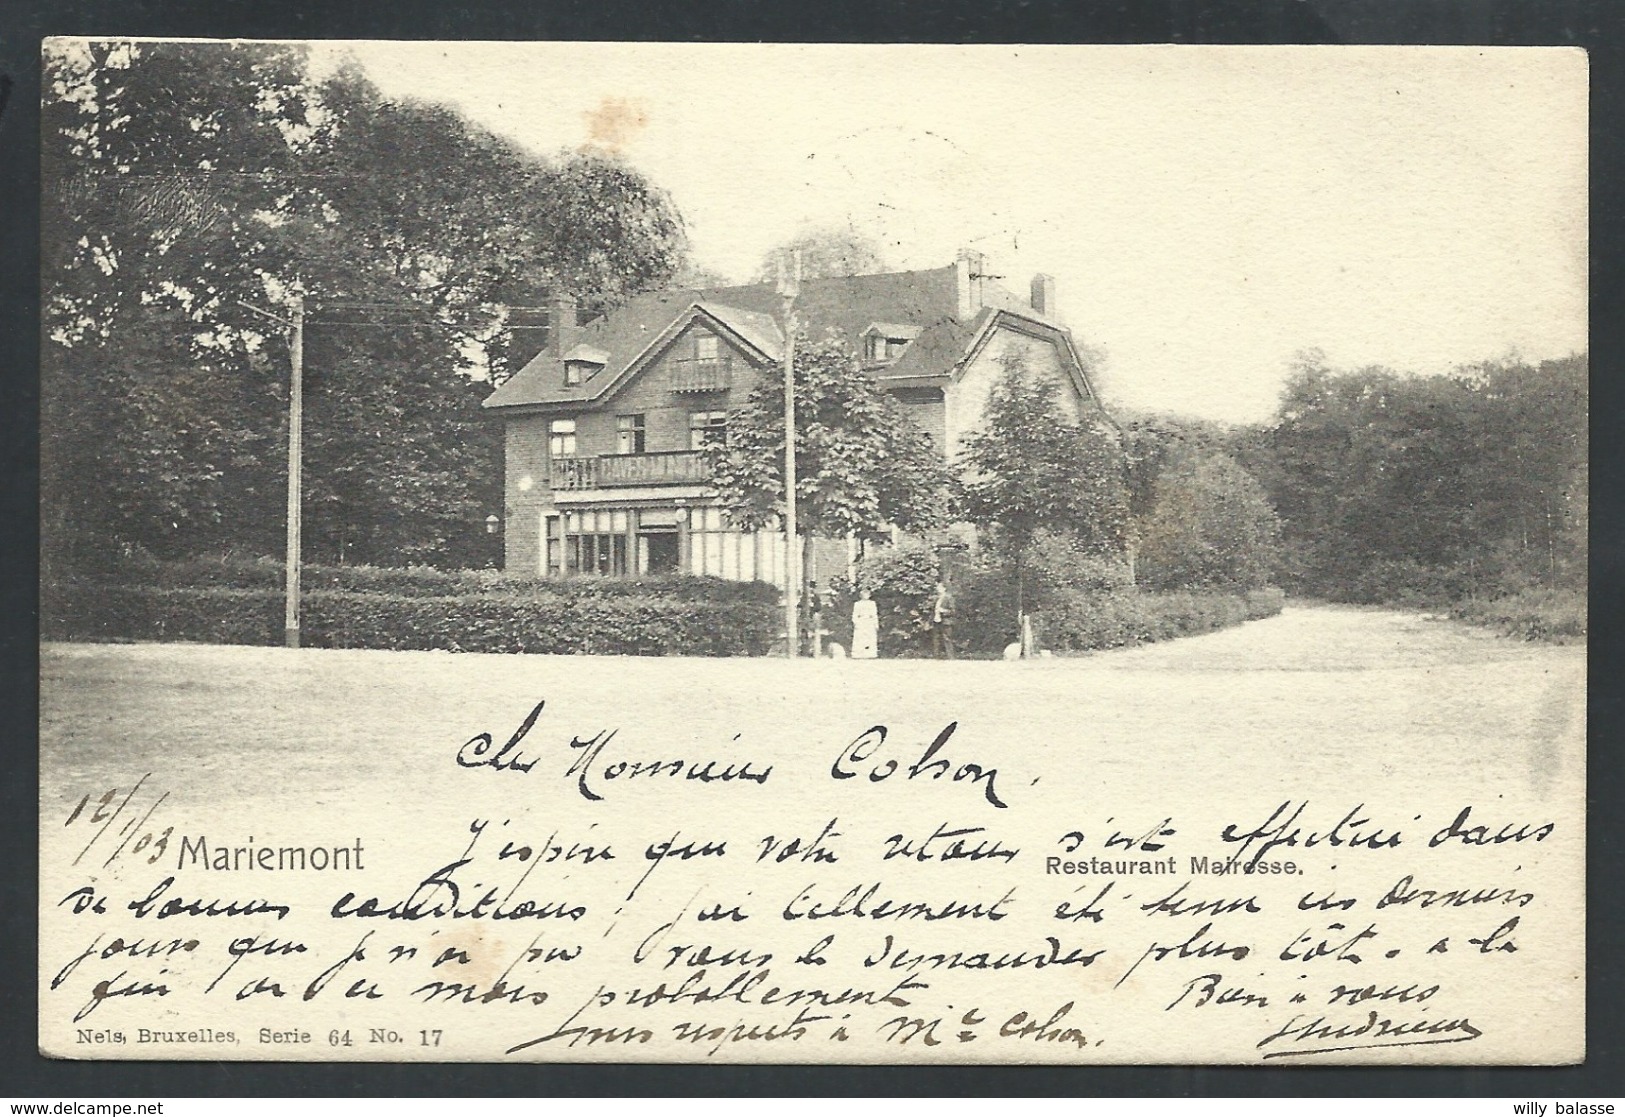 Cher Monsieur Colson.
12/1/03
Mariemont
J'espère que votre retour s'est effectué dans
Restaurant Mairesse.
de bonnes conditions, j'ai tellement été tenu ces derniers
jours que je n'ai pu vous le demander plus tôt. a la
fin de ce mois probablement
Bien à vous
mes respects à Me Colson.
Nels, Bruxelles, Serie 64 No. 17
willy balasse